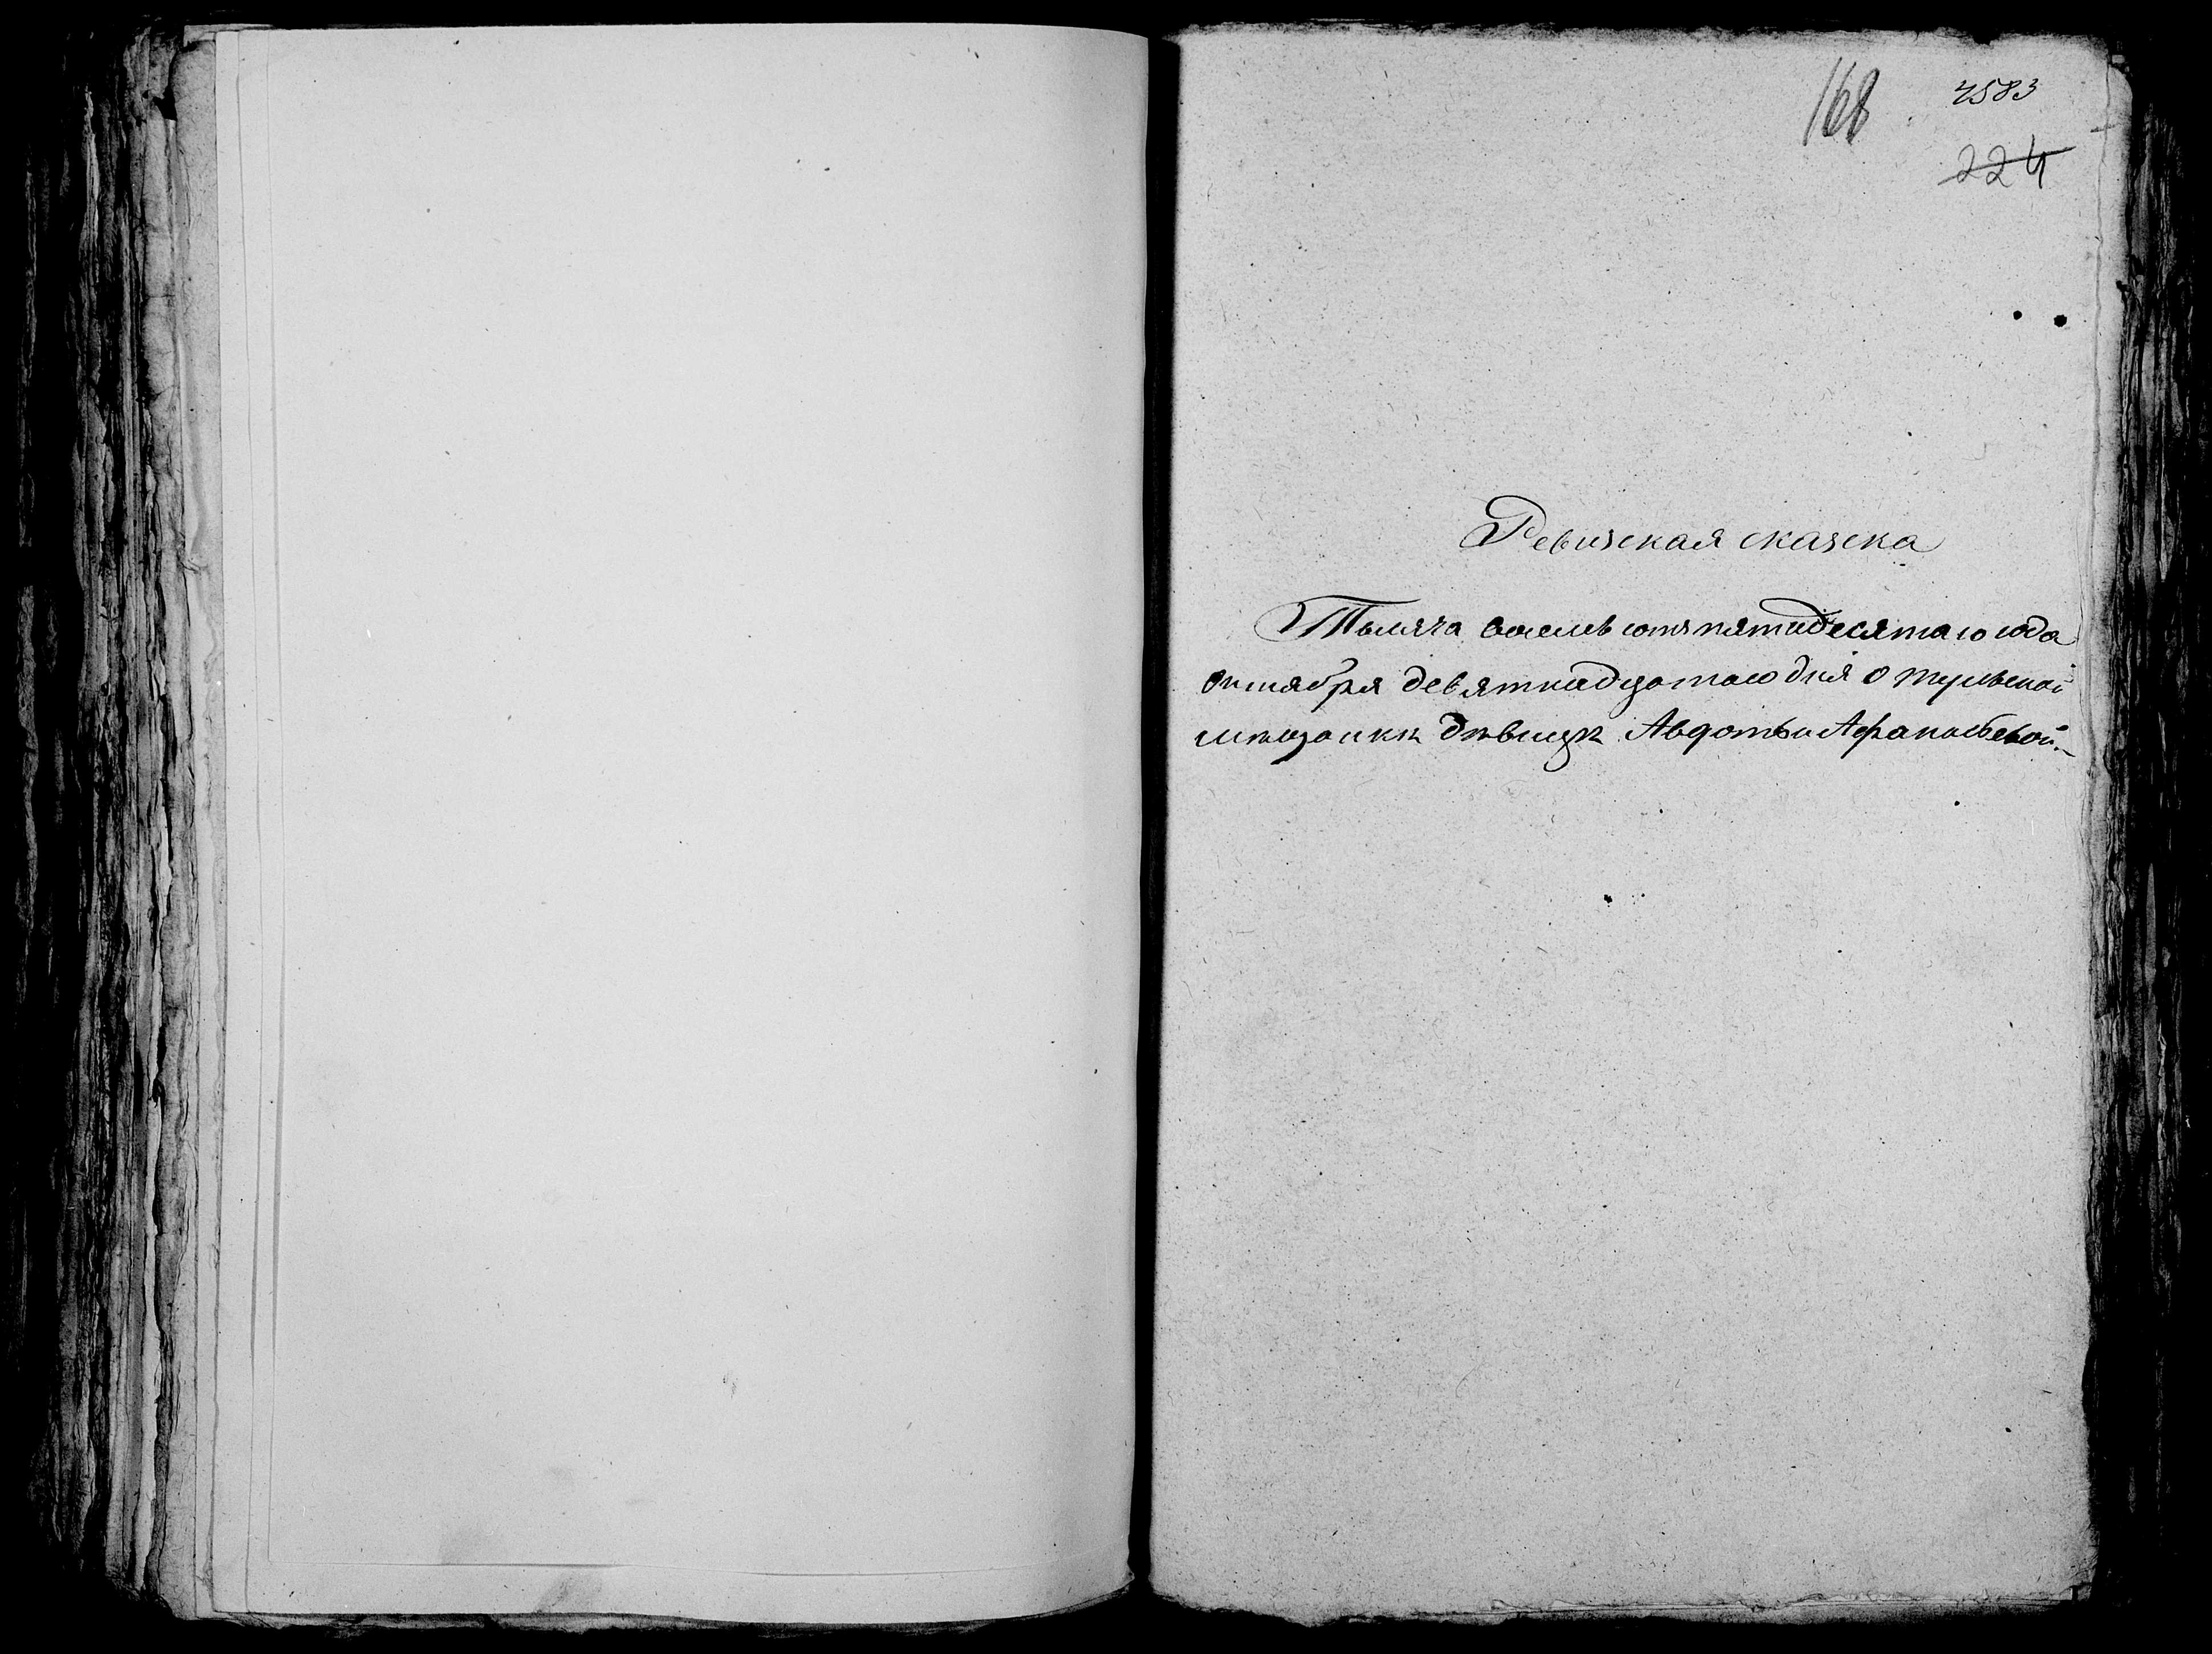 168 4583
224
Ревизская сказка
Тысяча восемь сотъ пятидесятаго года
октября девятнадцатаго дня о тульской
мѣщанкѣ дѣвицѣ Авдотьи Афанасьевой